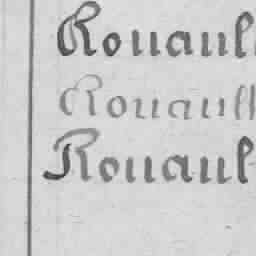 Rouaull
Rouaull
Rouaul